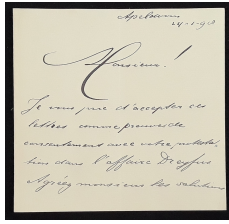 Apeldoorn
24-2-98
Monsieur!
Je vous prie d'accepter ces
lettres comme preuve de
consentement avec votre protesta-
tion dans l'affaire Dreyfus
Agréez monsieur les salutations